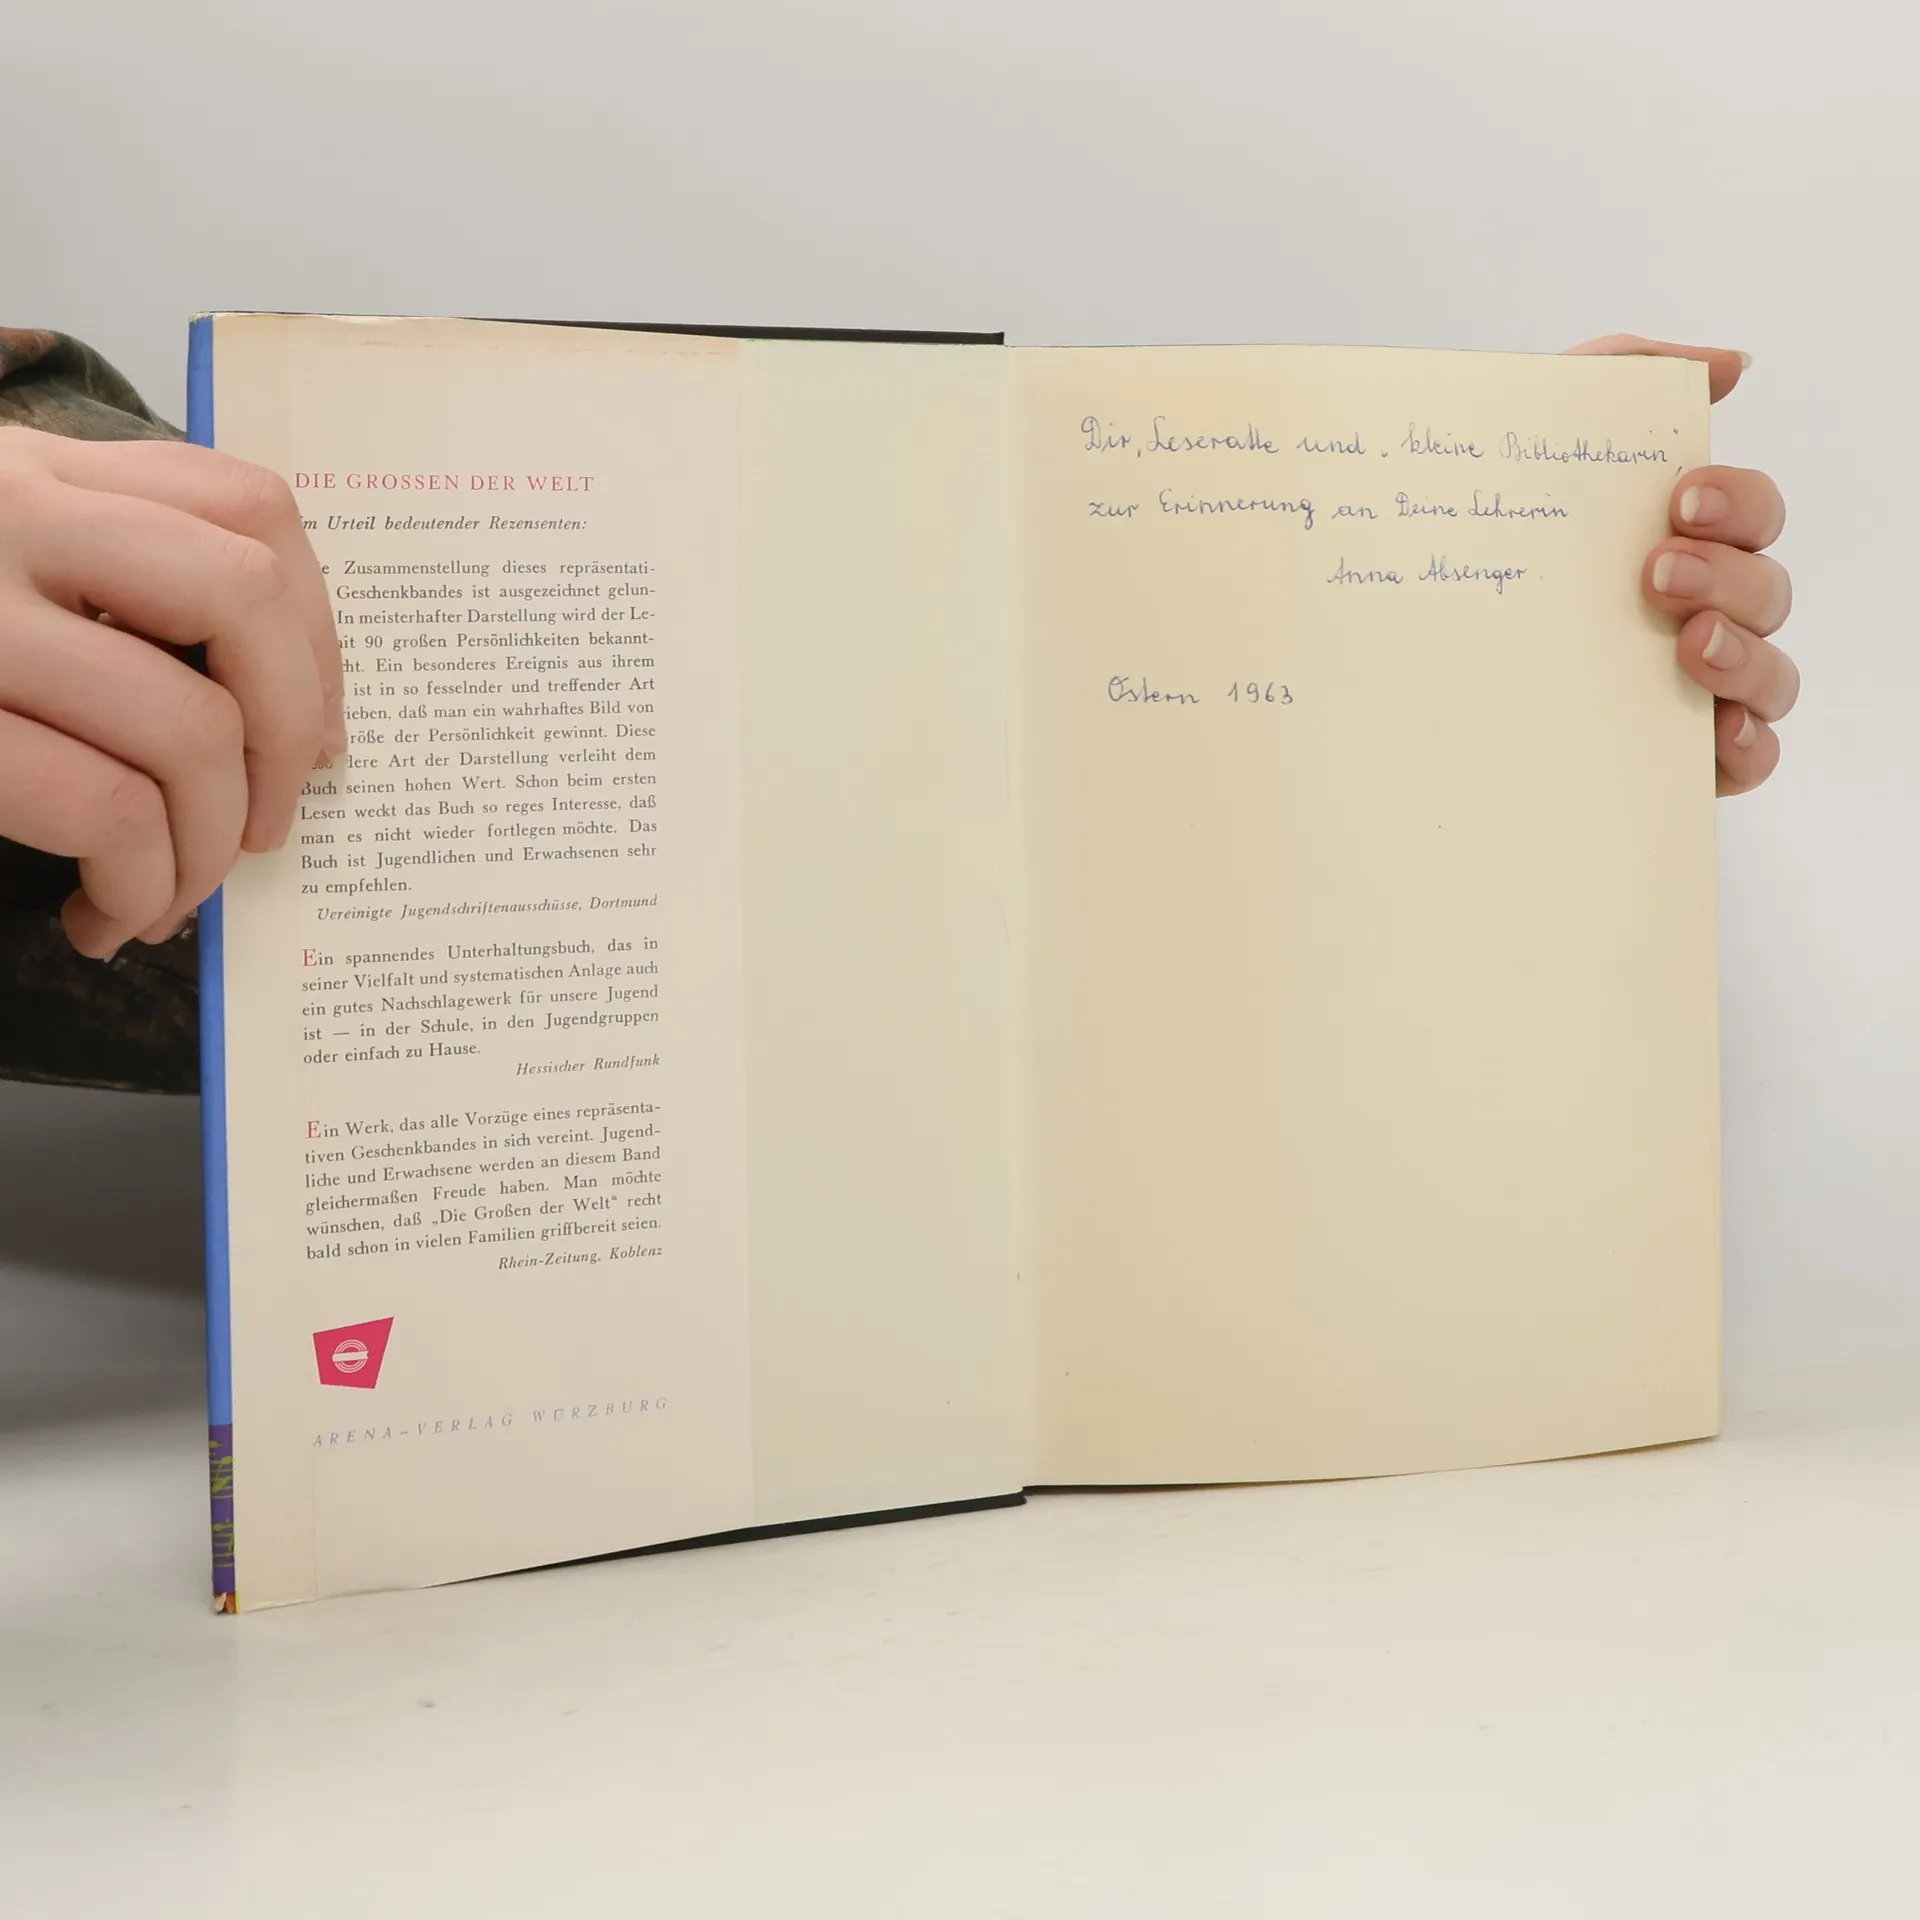 DIE GROSSEN DER WELT
im Urteil bedeutender Rezensenten:
Zusammenstellung dieses repräsentati-
Geschenkbandes ist ausgezeichnet gelun-
In meisterhafter Darstellung wird der Le-
90 großen Persönlichkeiten bekannt-
Ein besonderes Ereignis aus ihrem
ist in so fesselnder und treffender Art
daß man ein wahrhaftes Bild von
der Persönlichkeit gewinnt. Diese
Art der Darstellung verleiht dem
Buch seinen hohen Wert. Schon beim ersten
Lesen weckt das Buch so reges Interesse, daß
man es nicht wieder fortlegen möchte. Das
Buch ist Jugendlichen und Erwachsenen sehr
zu empfehlen.
Vereinigte Jugendschriftenausschüsse, Dortmund
Ein spannendes Unterhaltungsbuch, das in
seiner Vielfalt und systematischen Anlage auch
ein gutes Nachschlagewerk für unsere Jugend
ist — in der Schule, in den Jugendgruppen
oder einfach zu Hause.
Hessischer Rundfunk
Ein Werk, das alle Vorzüge eines repräsenta-
tiven Geschenkbandes in sich vereint. Jugend-
liche und Erwachsene werden an diesem Band
gleichermaßen Freude haben. Man möchte
wünschen, daß „Die Großen der Welt“ recht
bald schon in vielen Familien griffbereit seien.
Rhein-Zeitung, Koblenz
ARENA-VERLAG WÜRZBURG
Dir, Leseratte und „kleine Bibliothekarin“,
zur Erinnerung an Deine Lehrerin
Anna Absenger.
Ostern 1963